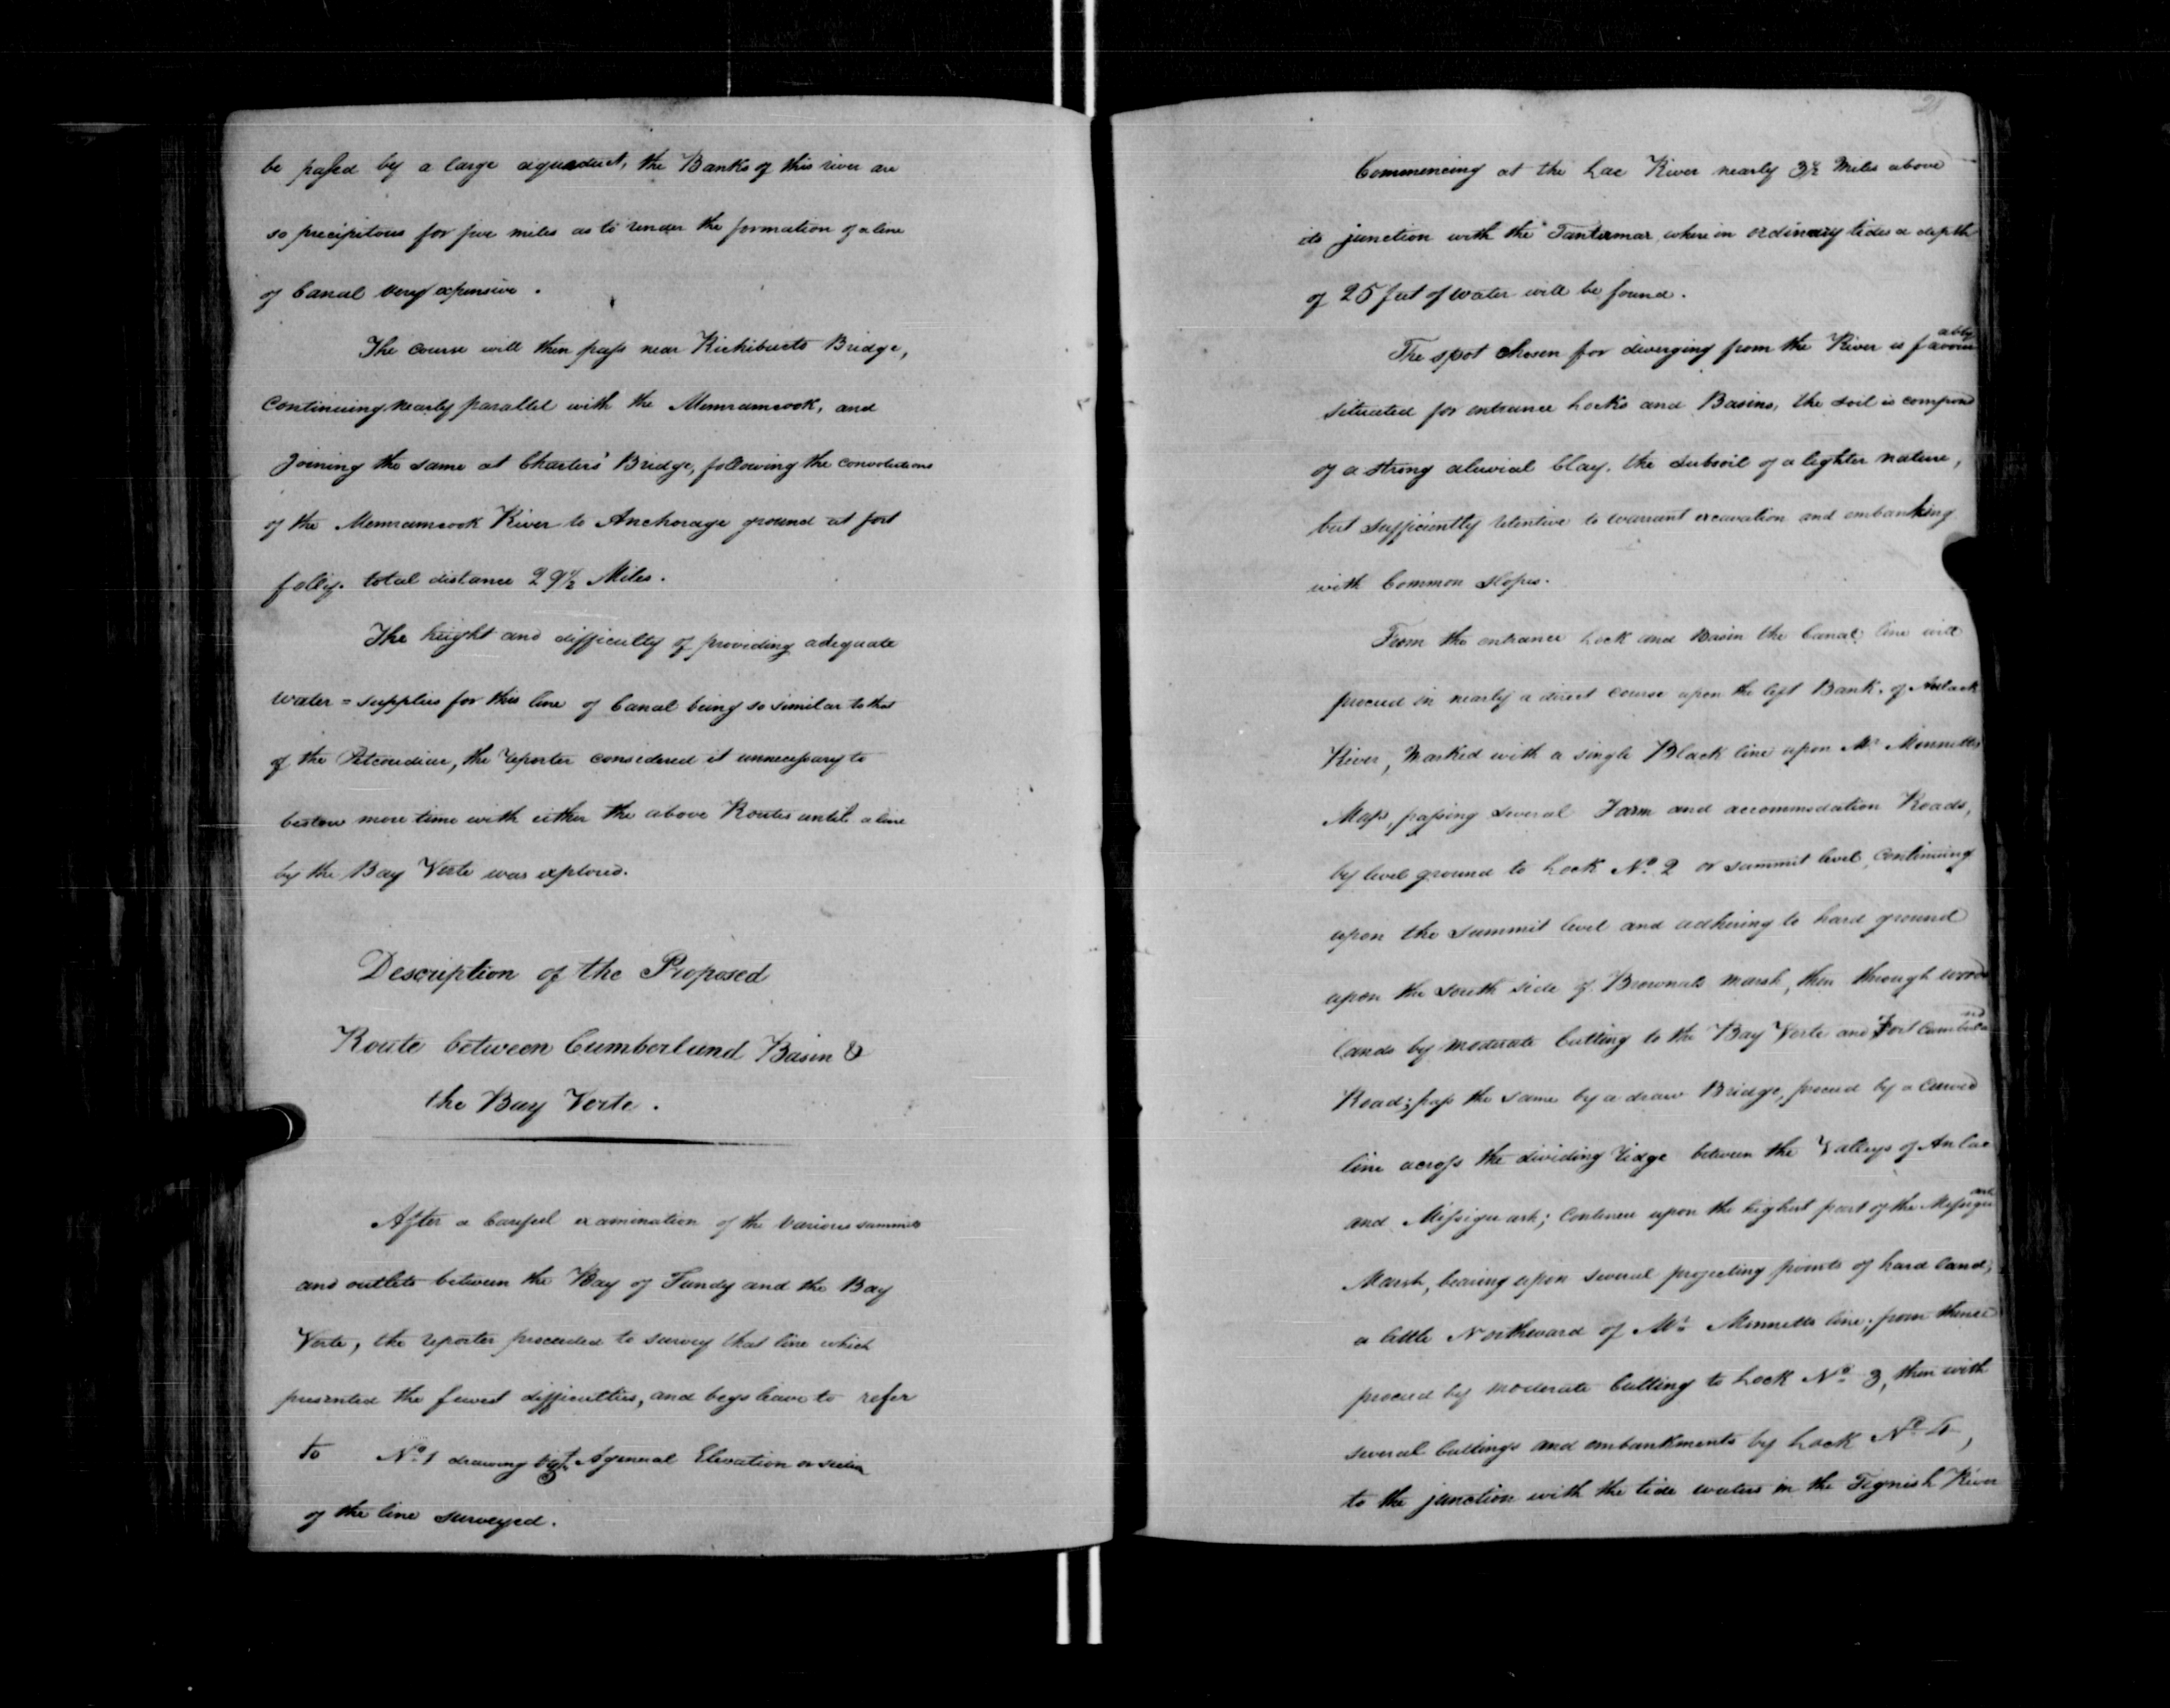 be passed by a large aqueduct, the Banks of this river are
so precipitous for five miles as to render the formation of a line
of Canal very expensive.
The course will then pass near Richibucto Bridge,
Continuing nearly parallel with the Memramcook, and
Joining the same at Charters' Bridge, following the convolutions
of the Memramcook River to Anchorage ground at fort
folly. total distance 29½ Miles.
The height and difficulty of providing adequate
water = supplies for this line of Canal being so similar to that
of the Petcoudiac, the reporter considered it unnecessary to
bestow more time with either the above Routes until a line
by the Bay Verte was explored.
Description of the Proposed
Route between Cumberland Basin &
the Bay Verte.
After a Careful examination of the various summits
and outlets between the Bay of Fundy and the Bay
Verte, the reporter proceeded to survey that line which
presented the fewest difficulties, and begs leave to refer
to No. 1 drawing A general Elevation or section
of the line surveyed.
28
Commencing at the Lac River nearly 3½ Miles above
its junction with the Tantermar where in ordinary tides a depth
of 25 feet of water will be found.
The spot chosen for diverging from the River is favourably
situated for entrance Locks and Basins, the soil is composed
of a strong aluvial Clay. the subsoil of a lighter nature,
but sufficiently retentive to warrant excavation and embanking
with Common slopes.
From the entrance Lock and Basin the Canal line will
proceed in nearly a direct course upon the left Bank of Aulack
River, Marked with a single Black line upon Mr Minnetts
Map, passing several Farm and accommodation Roads,
by level ground to Lock No. 2 or summit level, Continuing
upon the summit level and adhering to hard ground
upon the south side of Brownals marsh, then through wood
lands by moderate Cutting to the Bay Verte and Fort Cumberland
Road; pass the same by a draw Bridge, proceed by a Curved
line across the dividing ridge between the Valleys of An Lac
and Missiguash; Continue upon the highest part of the Missiguash
Marsh, bearing upon several projecting points of hard land;
a little Northward of Mr Minnetts line; from thence
proceed by moderate Cutting to Lock No. 3, then with
several Cuttings and embankments by Lock No. 4,
to the junction with the tide waters in the Tignish River